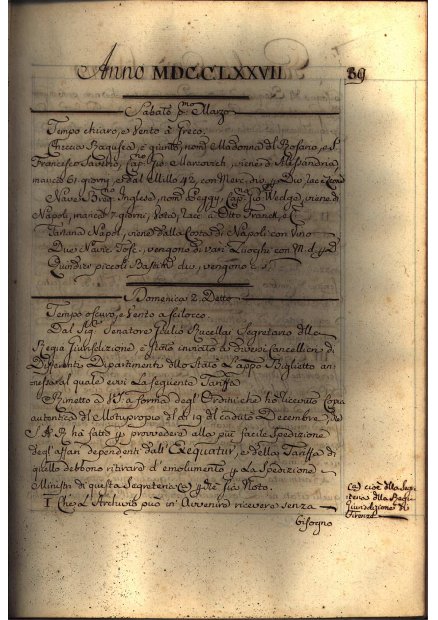 Anno MDCCLXXVII 89
Sabato p.mo Marzo
Tempo chiaro, e Vento a Greco.
Checcia Ragusea, è giunta, nom.a Madonna del Rosario, e S.
Francesco Cap.no Gio: Marcovich, viene d'Alessandria,
manca 61. giorni, e dal Millo 42, con Merc. div. p. Div.
Nave Brig.no Inglese, nom.a Peggy, Cap.no Gio: Wedge, viene di
Napoli, manca 7. giorni, Voto, racc. a Otto Franck, e C.
Tartana Napol. viene dalla Costa di Napoli con Vino
Due Navic. Tosc. vengono di vari Luoghi con M. d. p. D.
Quindici piccoli Bastim.ti div. vengono c. s.
Domenica 2. Detto
Tempo oscuro, e Vento a Scilocco.
Dal Sig. Senatore Giulio Rucellai Segretario della
Regia Giurisdizione è stato inviato a' diversi Cancellieri di
Differenti Dipartimenti dello Stato l'appo Biglietto an-
nessa al quale evvi la seguente Tariffa
Rimetto a VS. a forma degl' Ordini che ho ricevuto Copia
autentica del Motuproprio del dì 19 del caduto Decembre, che
S. A. R. ha fatto p. provvedere alla più facile Spedizione
degl' affari dependenti dall' Exequatur, e della Tariffa di
quello debbono ritirare d' emolumento p. la Spedizione
Ministri di questa Segreteria (a) p. che sia Noto.
I Che l' Archivio può in Avvenire ricevere senza
bisogno
(a) cioè della Seg-
reteria della Regia
Giurisdizione di
Firenze